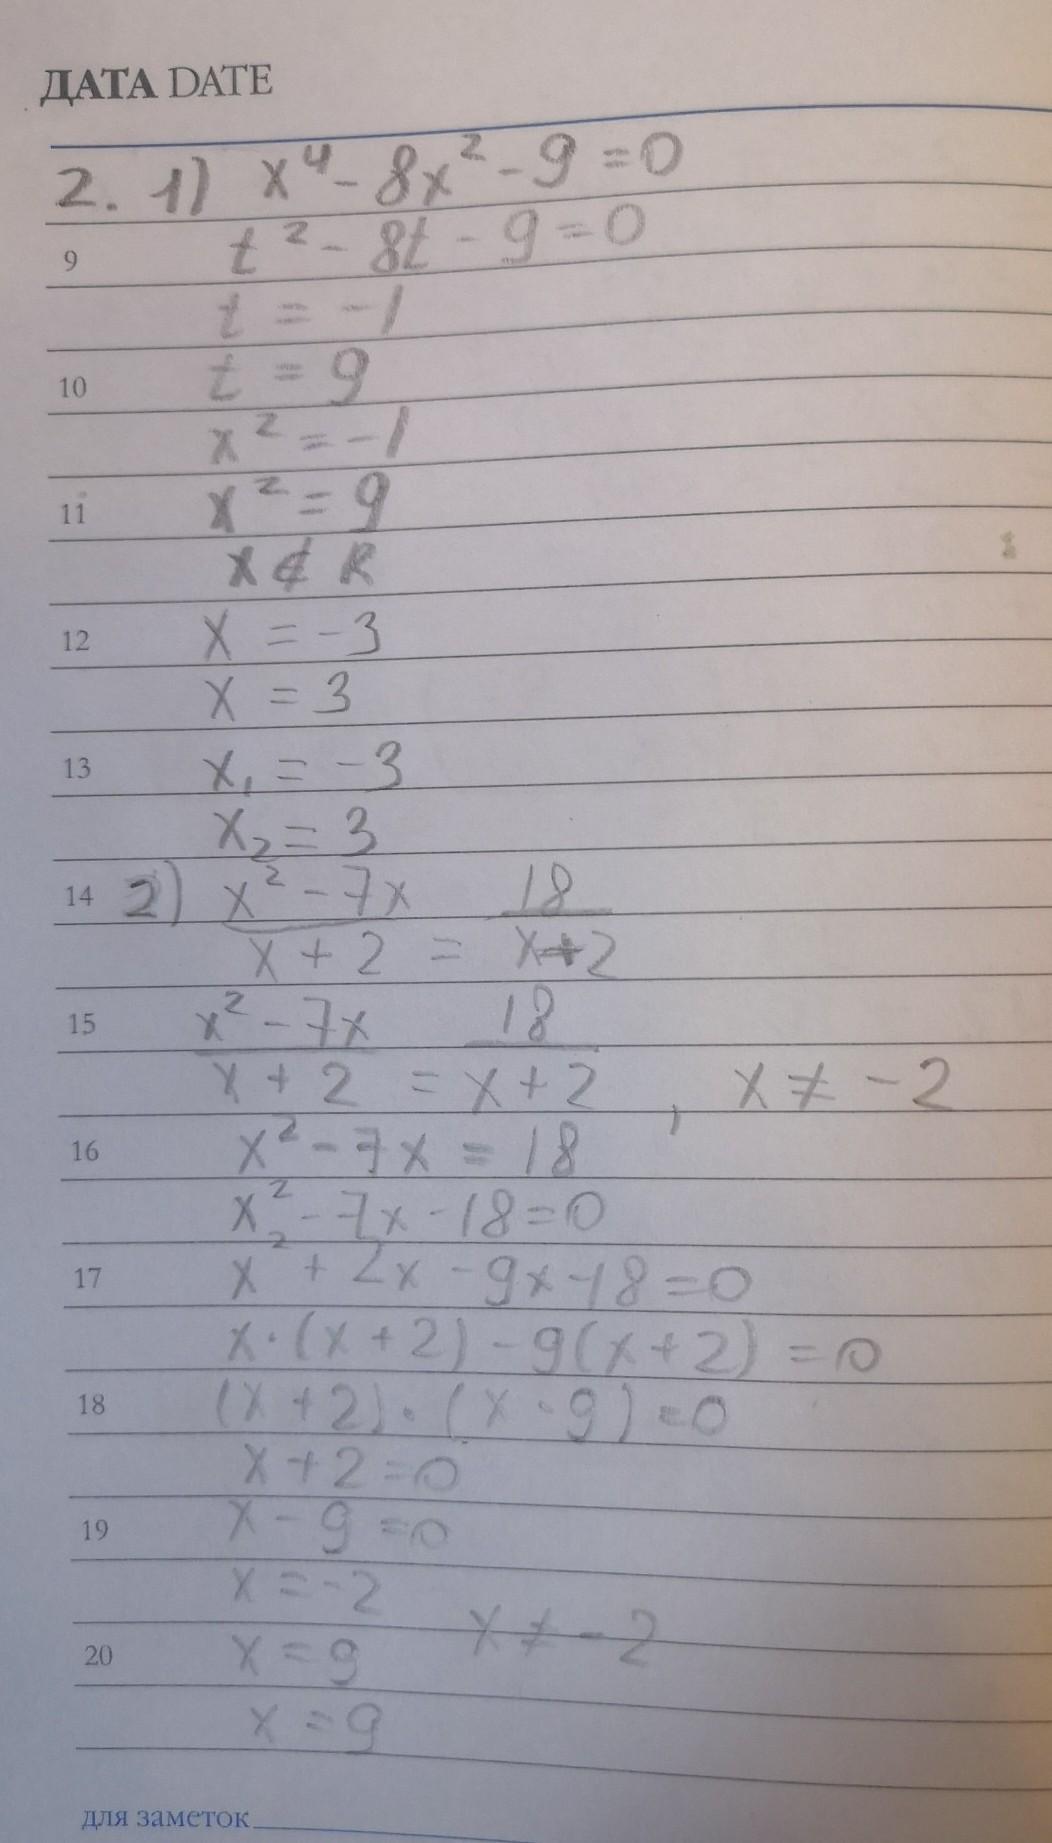 ДАТА DATE
2. 1) x⁴ - 8x² - 9 = 0
9 t² - 8t - 9 = 0
t = -1
10 t = 9
x² = -1
11 x² = 9
x ∉ R
12 x = -3
x = 3
13 x₁ = -3
x₂ = 3
14 2) x² - 7x 18
x + 2 = x+2
15 x² - 7x 18
x + 2 = x + 2 , x ≠ -2
16 x² - 7x = 18
x² - 7x - 18 = 0
17 x² + 2x - 9x - 18 = 0
x · (x + 2) - 9(x + 2) = 0
18 (x + 2) · (x - 9) = 0
x + 2 = 0
19 x - 9 = 0
x = -2
20 x = 9 x ≠ -2
x = 9
для заметок